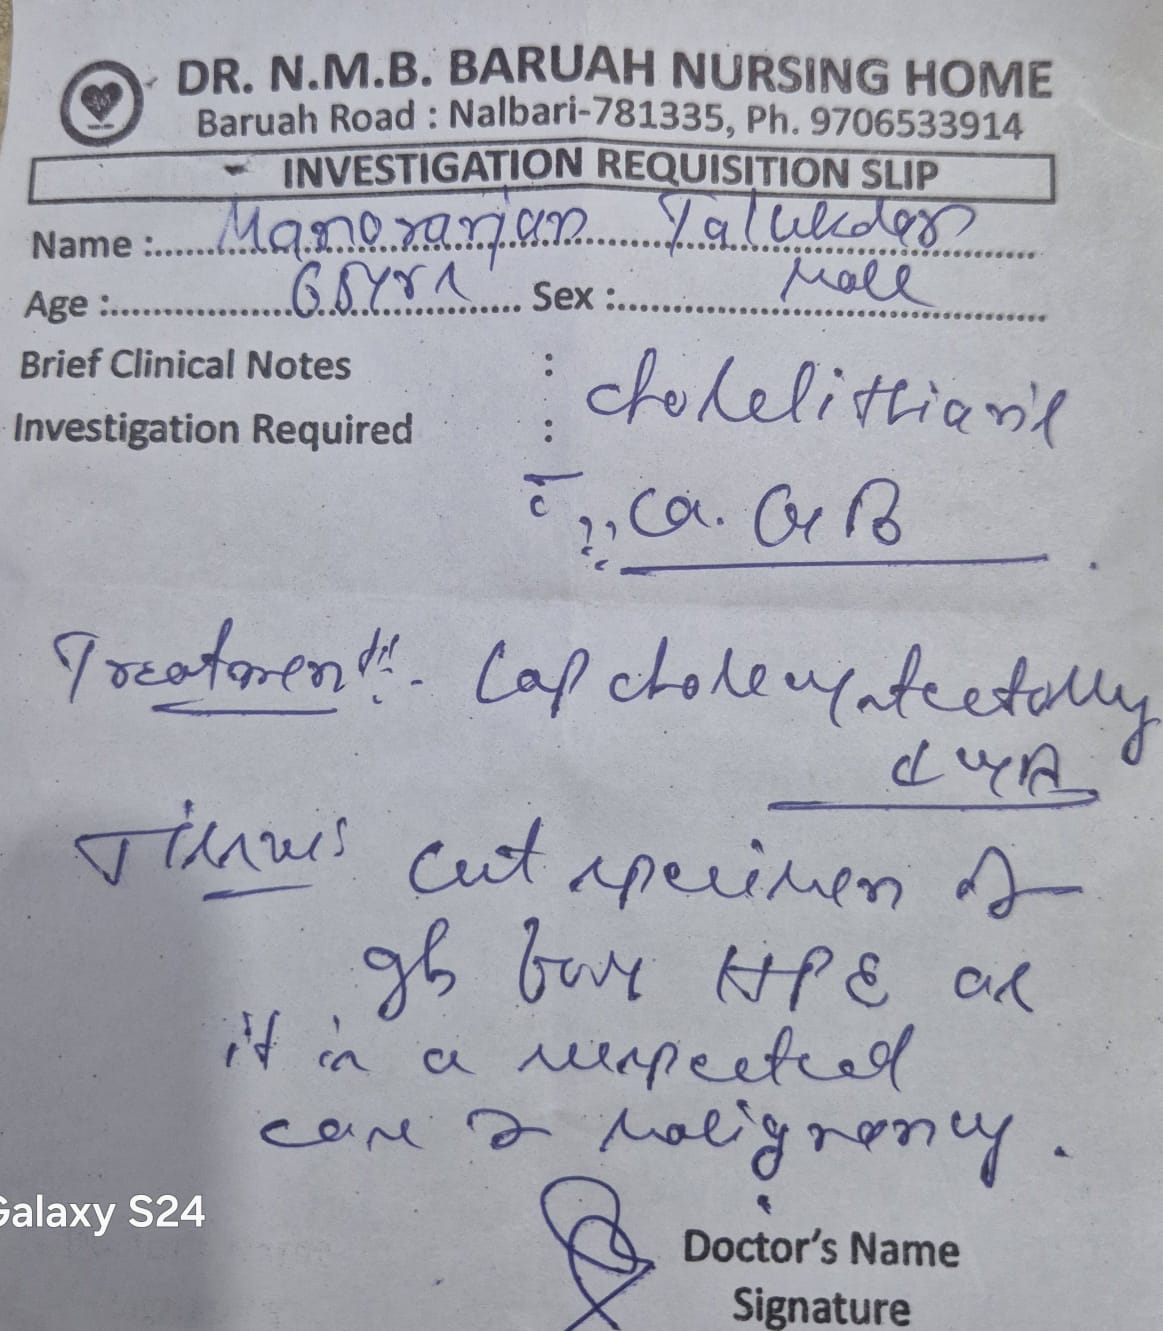 DR. N.M.B. BARUAH NURSING HOME
Baruah Road : Nalbari-781335, Ph. 9706533914
INVESTIGATION REQUISITION SLIP
Name : Manoranjan Talukdar
Age : 65 yrs Sex : Male
Brief Clinical Notes : Cholelithiasis
Investigation Required :
c̄ ?? Ca. GB
Treatment:- Lap cholecystectomy
Tissues: Cut specimen of
gb for HPE as
it is a suspected
case of malignancy.
Galaxy S24
Doctor's Name
Signature